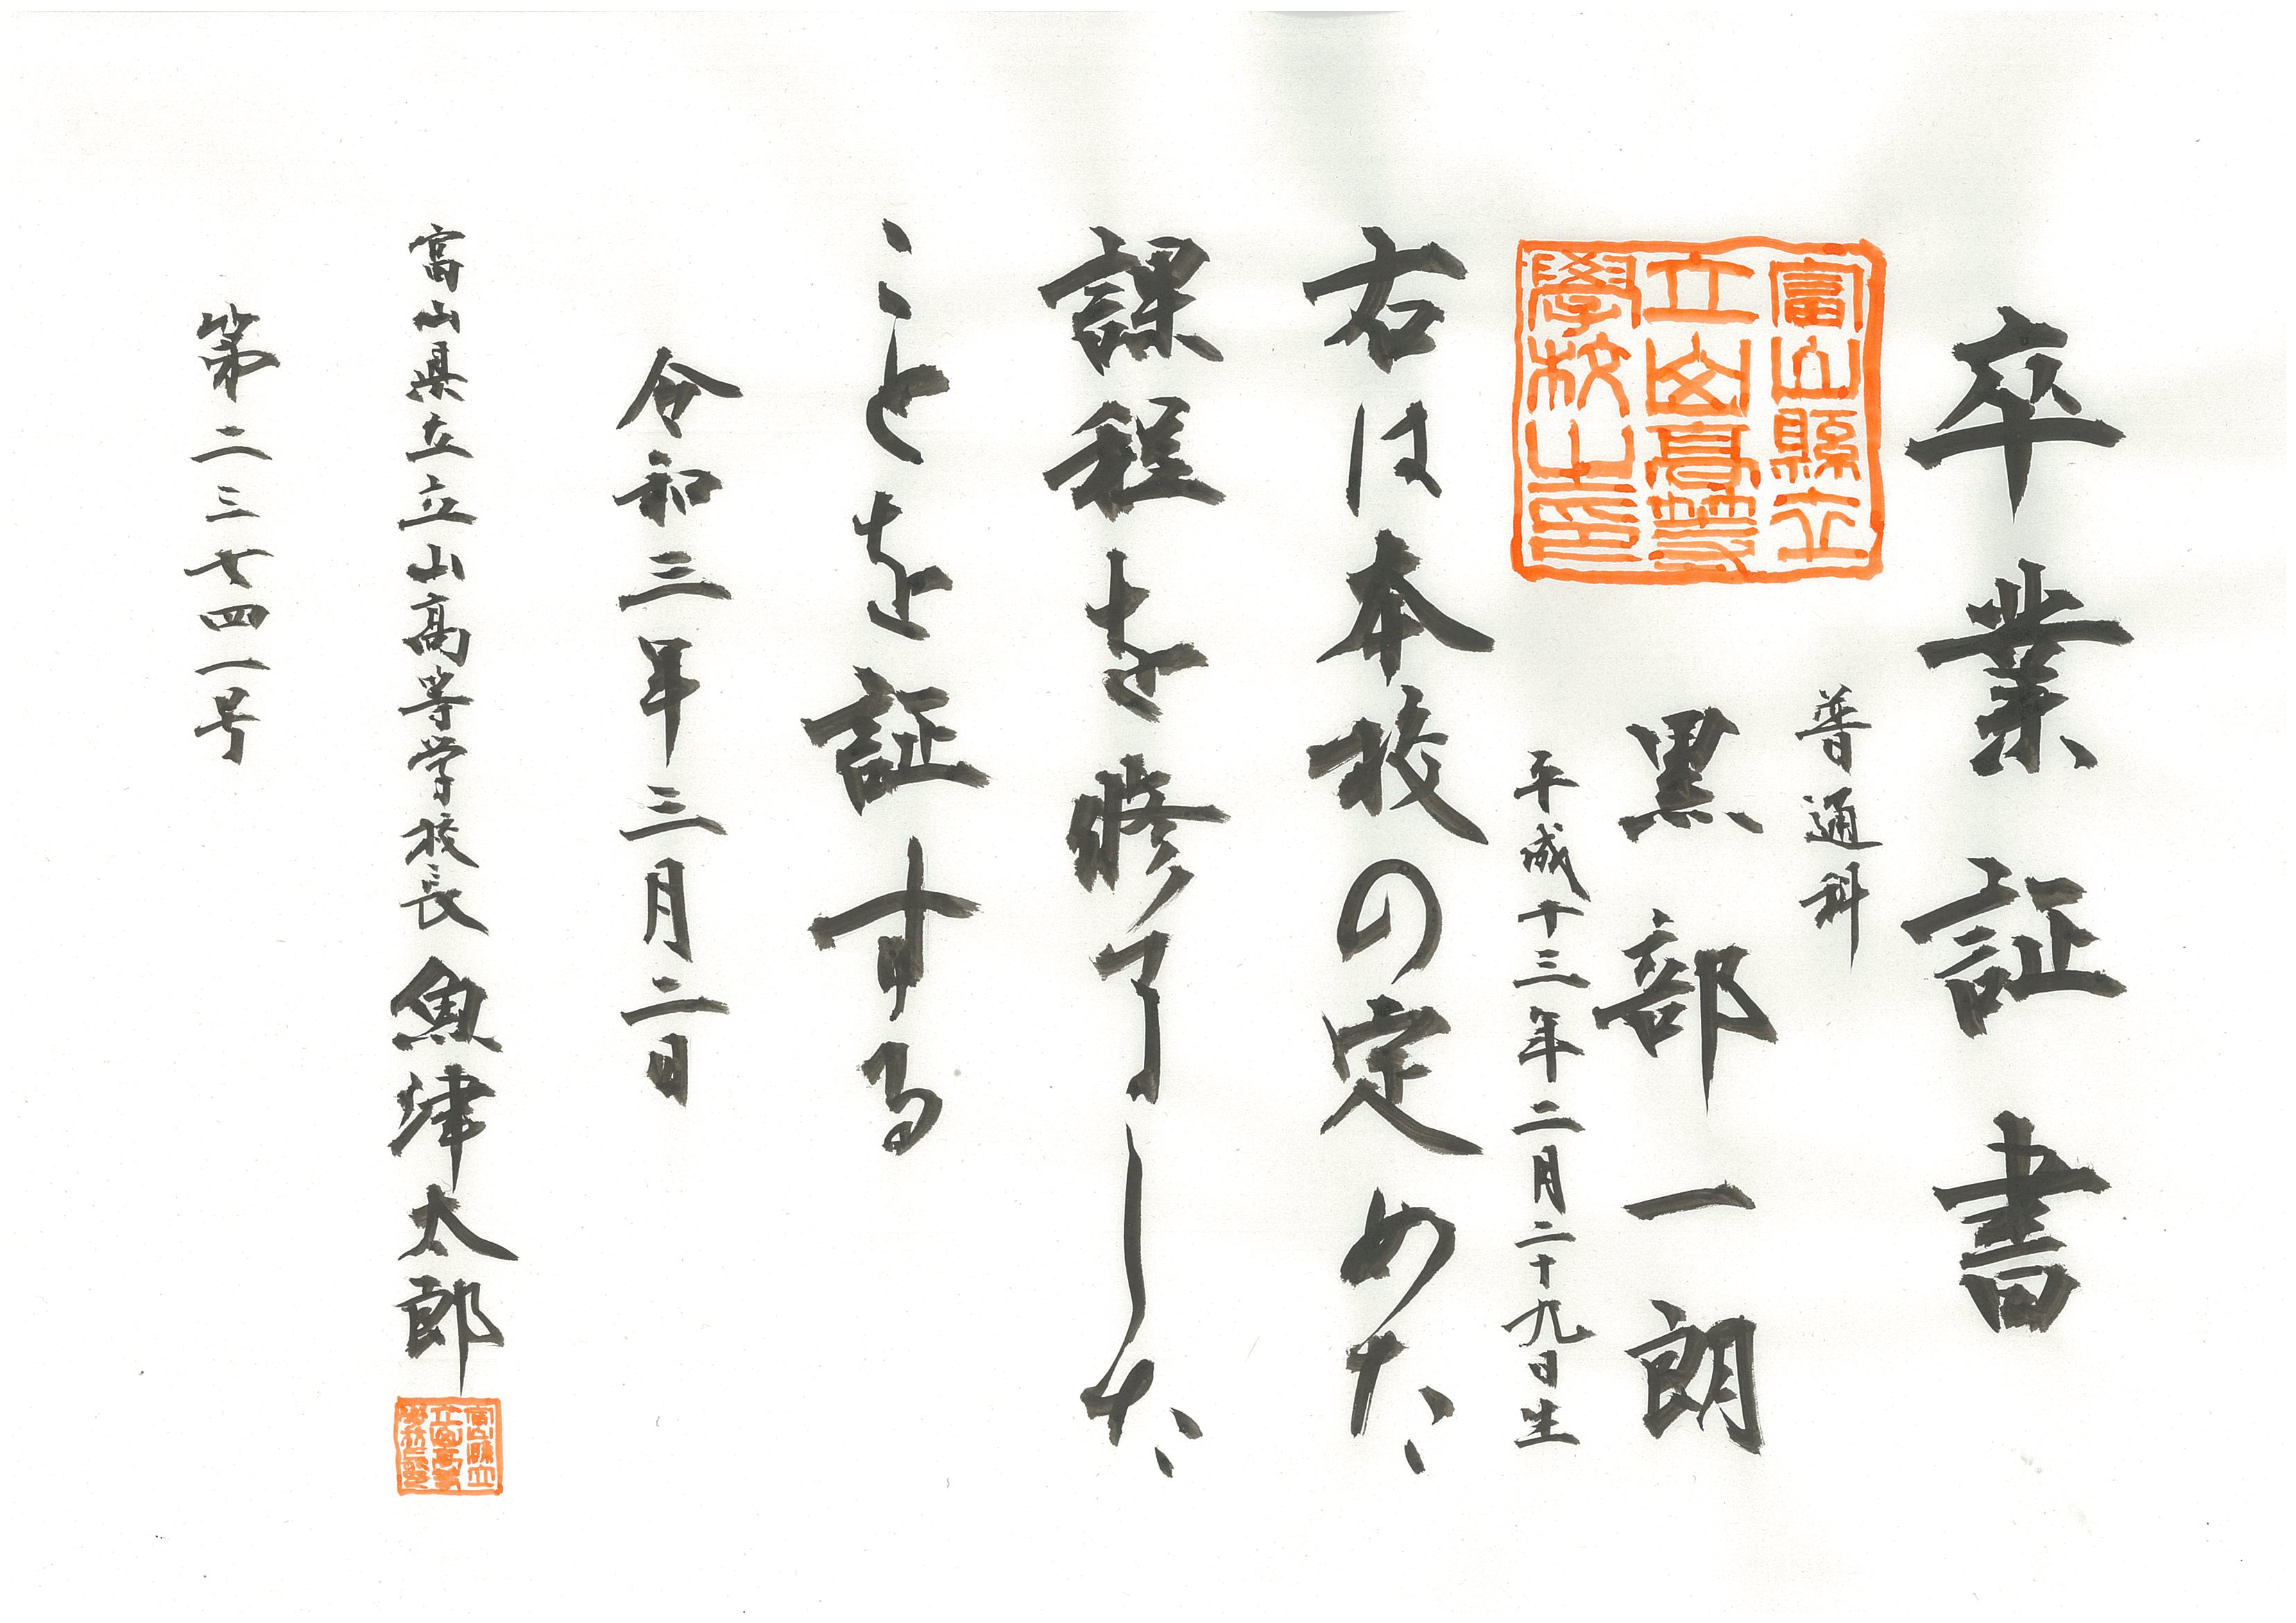 卒業証書
富山縣立
立山高等
學校之印
普通科
黒部一朗
平成十三年二月二十九日生
右は本校の定めた
課程を修了した
ことを証する
令和三年三月二日
富山県立立山高等学校長 魚津太郎
第二三七四一号